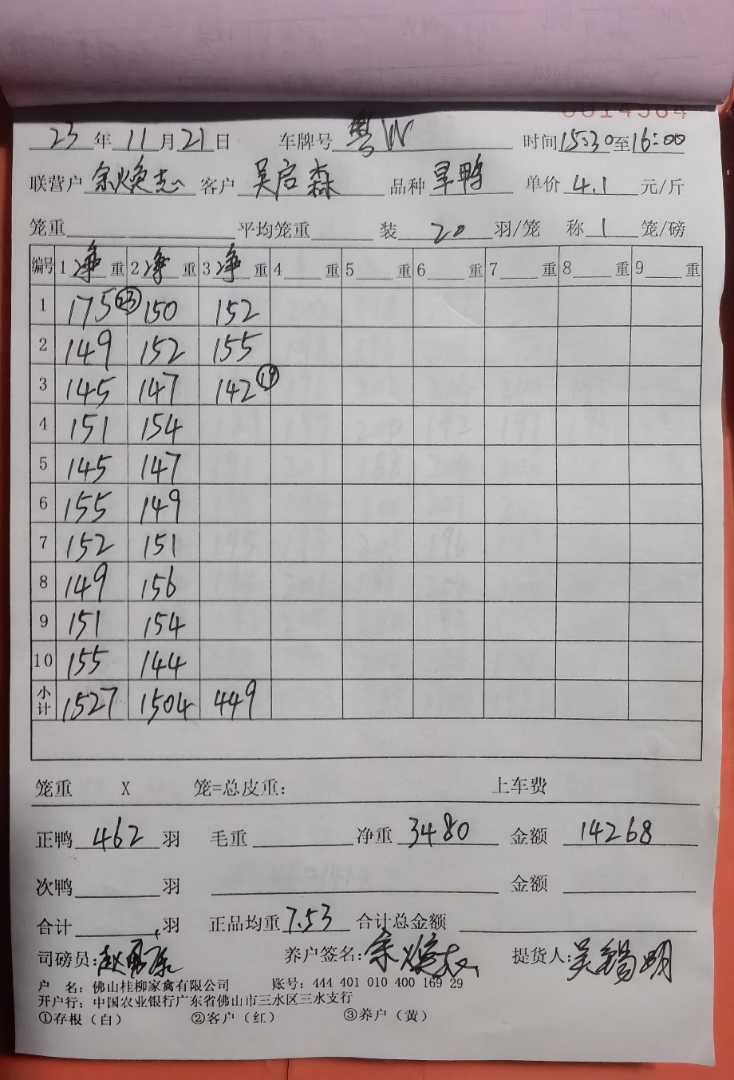 23年11月21日 车牌号 粤W 时间15:30至16:00
联营户 余焕志 客户 吴启森 品种 旱鸭 单价 4.1 元/斤
笼重 平均笼重 装 20 羽/笼 称 1 笼/磅
编号 1 净重 2 净重 3 净重 4 重 5 重 6 重 7 重 8 重 9 重
1 175 23 150 152
2 149 152 155
3 145 147 142 19
4 151 154
5 145 147
6 155 149
7 152 151
8 149 156
9 151 154
10 155 144
小计 1527 1504 449
笼重 X 笼=总皮重: 上车费
正鸭 462 羽 毛重 净重 3480 金额 14268
次鸭 羽 金额
合计 羽 正品均重 7.53 合计总金额
司磅员: 养户签名: 余焕志 提货人: 吴锡明
户 名: 佛山桂柳家禽有限公司 账号: 444 401 010 400 169 29
开户行: 中国农业银行广东省佛山市三水区三水支行
①存根(白) ②客户(红) ③养户(黄)